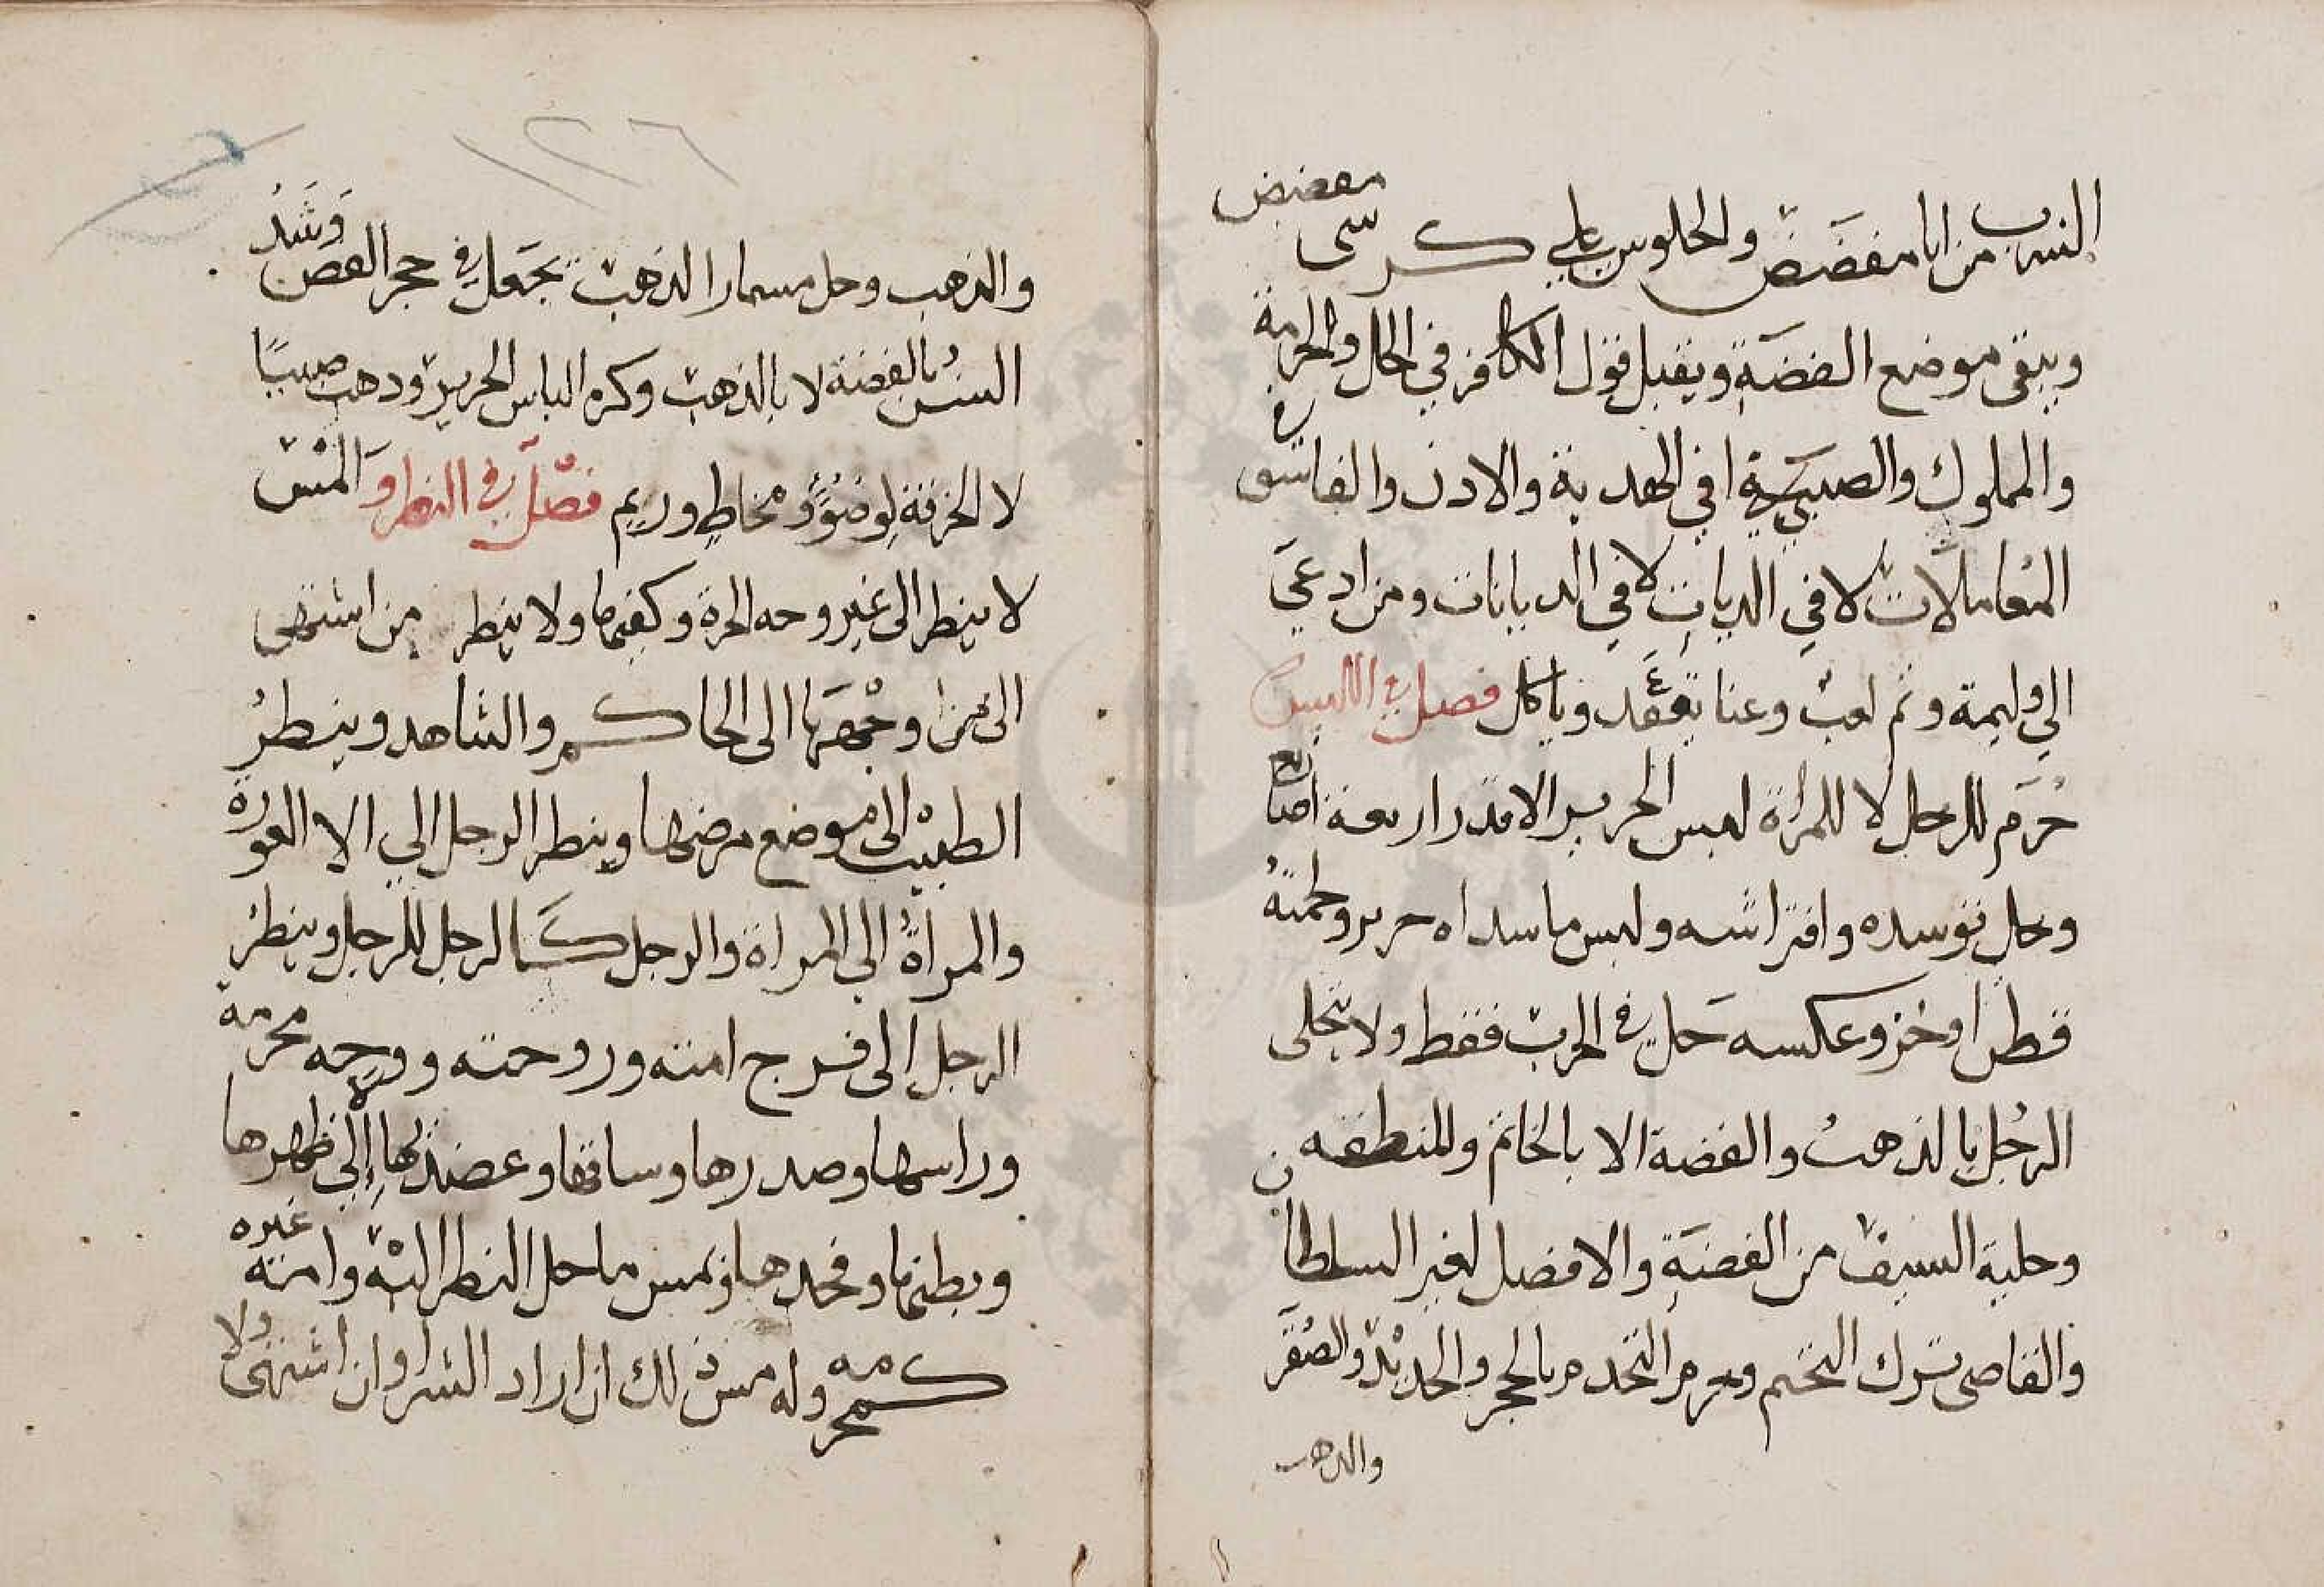 الشرب من انا مفضض والجلوس على كرسى مفضض
ويتقى موضع الفضة ويقبل قول الكافر في الحل والحرمة
والمملوك والصبي في الهدية والاذن والفاسق في
المعاملات لا في الديات لا في الديانات ومن ادعي
الي وليمة وثم لعب وغنا يقعد وياكل فصل في اللبس
حُرّم للرجل لا للمراة لبس الحرير الا قدر اربعة اصابع
وحل توسده وافتراشه ولبس ما سداه حرير ولحمتهُ
قطن او خز وعكسه حَل في الحرب فقط ولا يتحلى
الرجُل بالذهب والفضة الا بالخاتم والمنطقه
وحلية السيف من الفضة والافضل لغير السلطان
والقاضى ترك التختم وحرم التختم بالحجر والحديد والصُفَر
والذهب
١٢٦
والذهب وحل مسمار الذهب يجعل في حجر الفص وَشَدُ
السن بالفضة لا بالذهب وكره الباس الحرير وذهب صبيًا
لا الخرقة لوضُوءٍ ومخاطٍ وريم فصل في النظر والمس
لا ينظر الى غير وجه الحرة وكفيها ولا ينظر من اشتهى
الى وجهها الا الحاكم والشاهد وينظرُ
الطبيب الى موضع مرضها وينظر الرجل الي الا العورة
والمراةُ الي المراة والرجل كالرجل للرجل وينظرُ
الرجل الى فرج امته وزوجته ووجه محرمه
وراسها وصدرها وساقها وعضديها لا الي ظهرها
وبطنها وفخذها ويمس ما حل النظر اليه وامة غيره
كمحرمه وله مس ذلك ان اراد الشرا وان اشتهى ولا